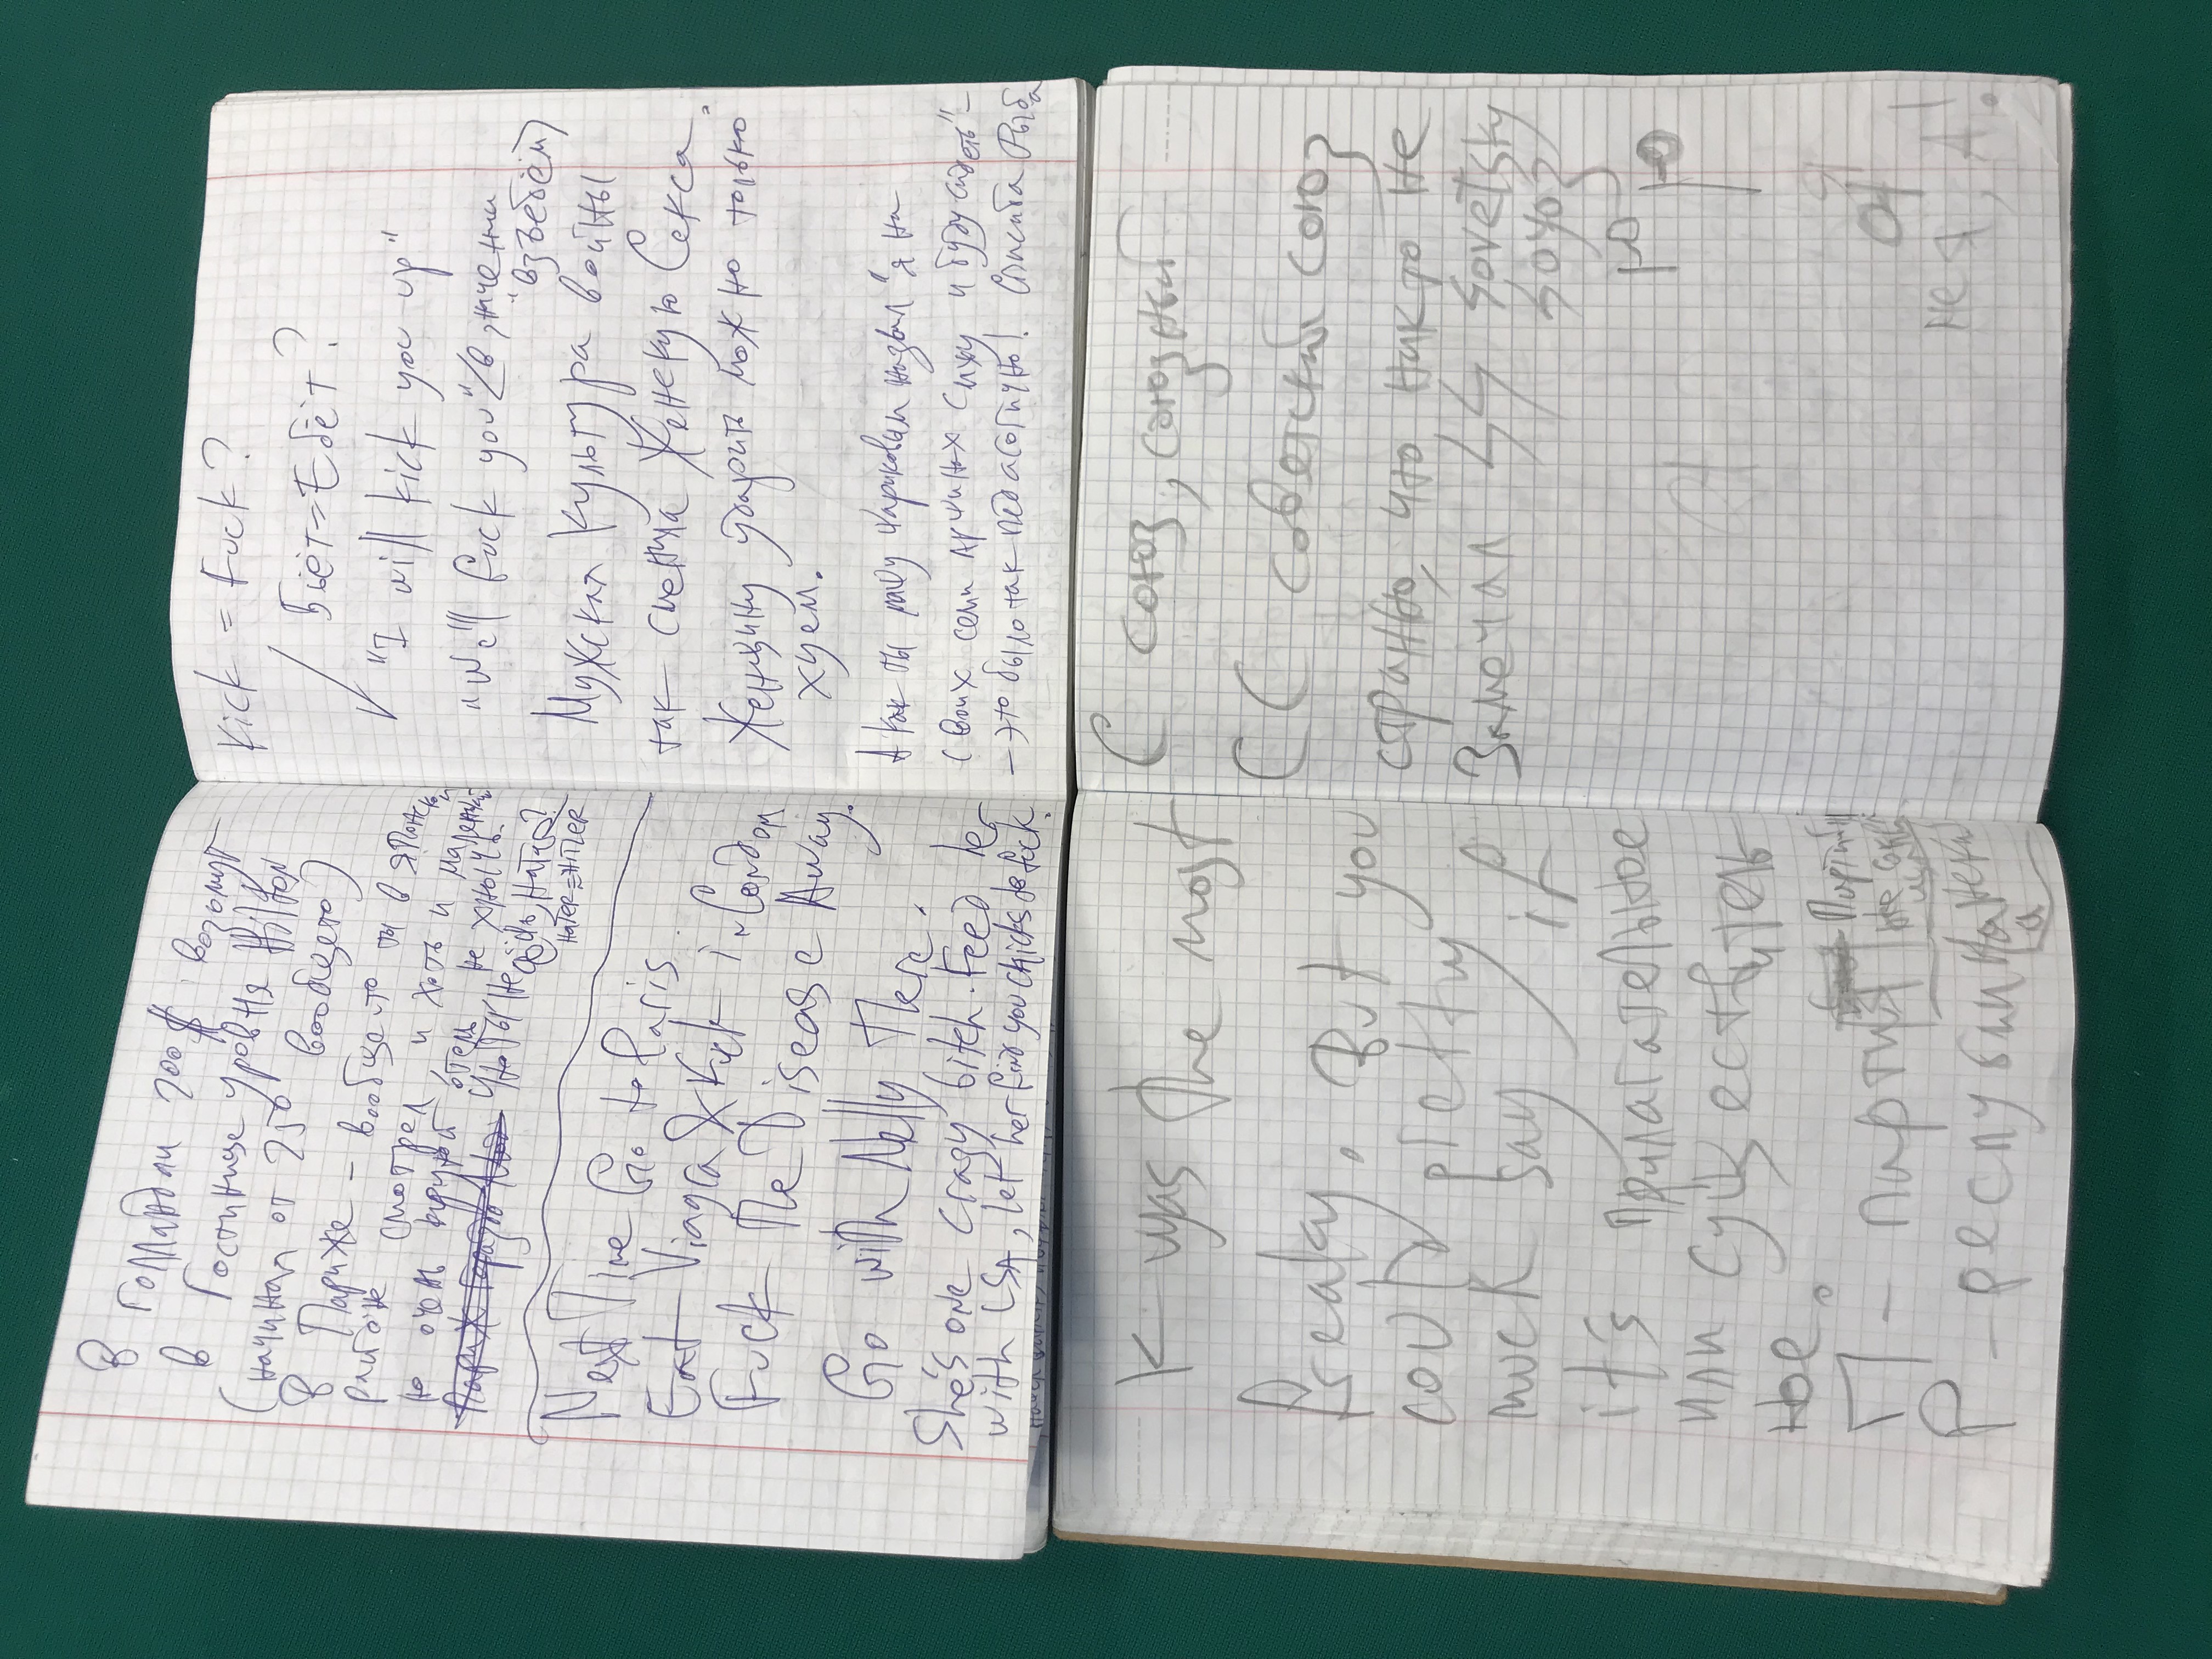 В Голландии 200$ возьмут
в гостинице уровня Hilton
(начиная от 250 вообщето)
В Париже – вообще-то ты в японском
районе смотрел, и хоть и маленький
но очень крутой отель, не хнычь.
Что ты не
HATER=HITLER
Next Time Go to Paris
Eat Viagra & Fuck in Condom
Fuck The Disease Away.
Go with Nelly There.
She's one crazy bitch. Feed her
with LSA, let her find you chicks to fuck.
Kick = Fuck?
Бьёт=Ебёт?
"I will kick you up"
"We'll fuck you" (в значении
"взъебём)
Мужская культура войны
так сменила Женскую Секса.
Женщину ударить можно только
хуем.
А как ты главу Шариковым назвал "я на
своих семи аршинах сижу и буду сидеть" –
– это было так недасотично! Спасиба Рыба
K was the most
freaky. But you
could pretty
much say if
it's прилагательное
или существитель
ное.
П – партия
Р – республика
С союз, союзный
СС советский союз
странно, что никто не
Замечал SS Sovetsky
soyuz
Ю
Ю
Я
не я, А!